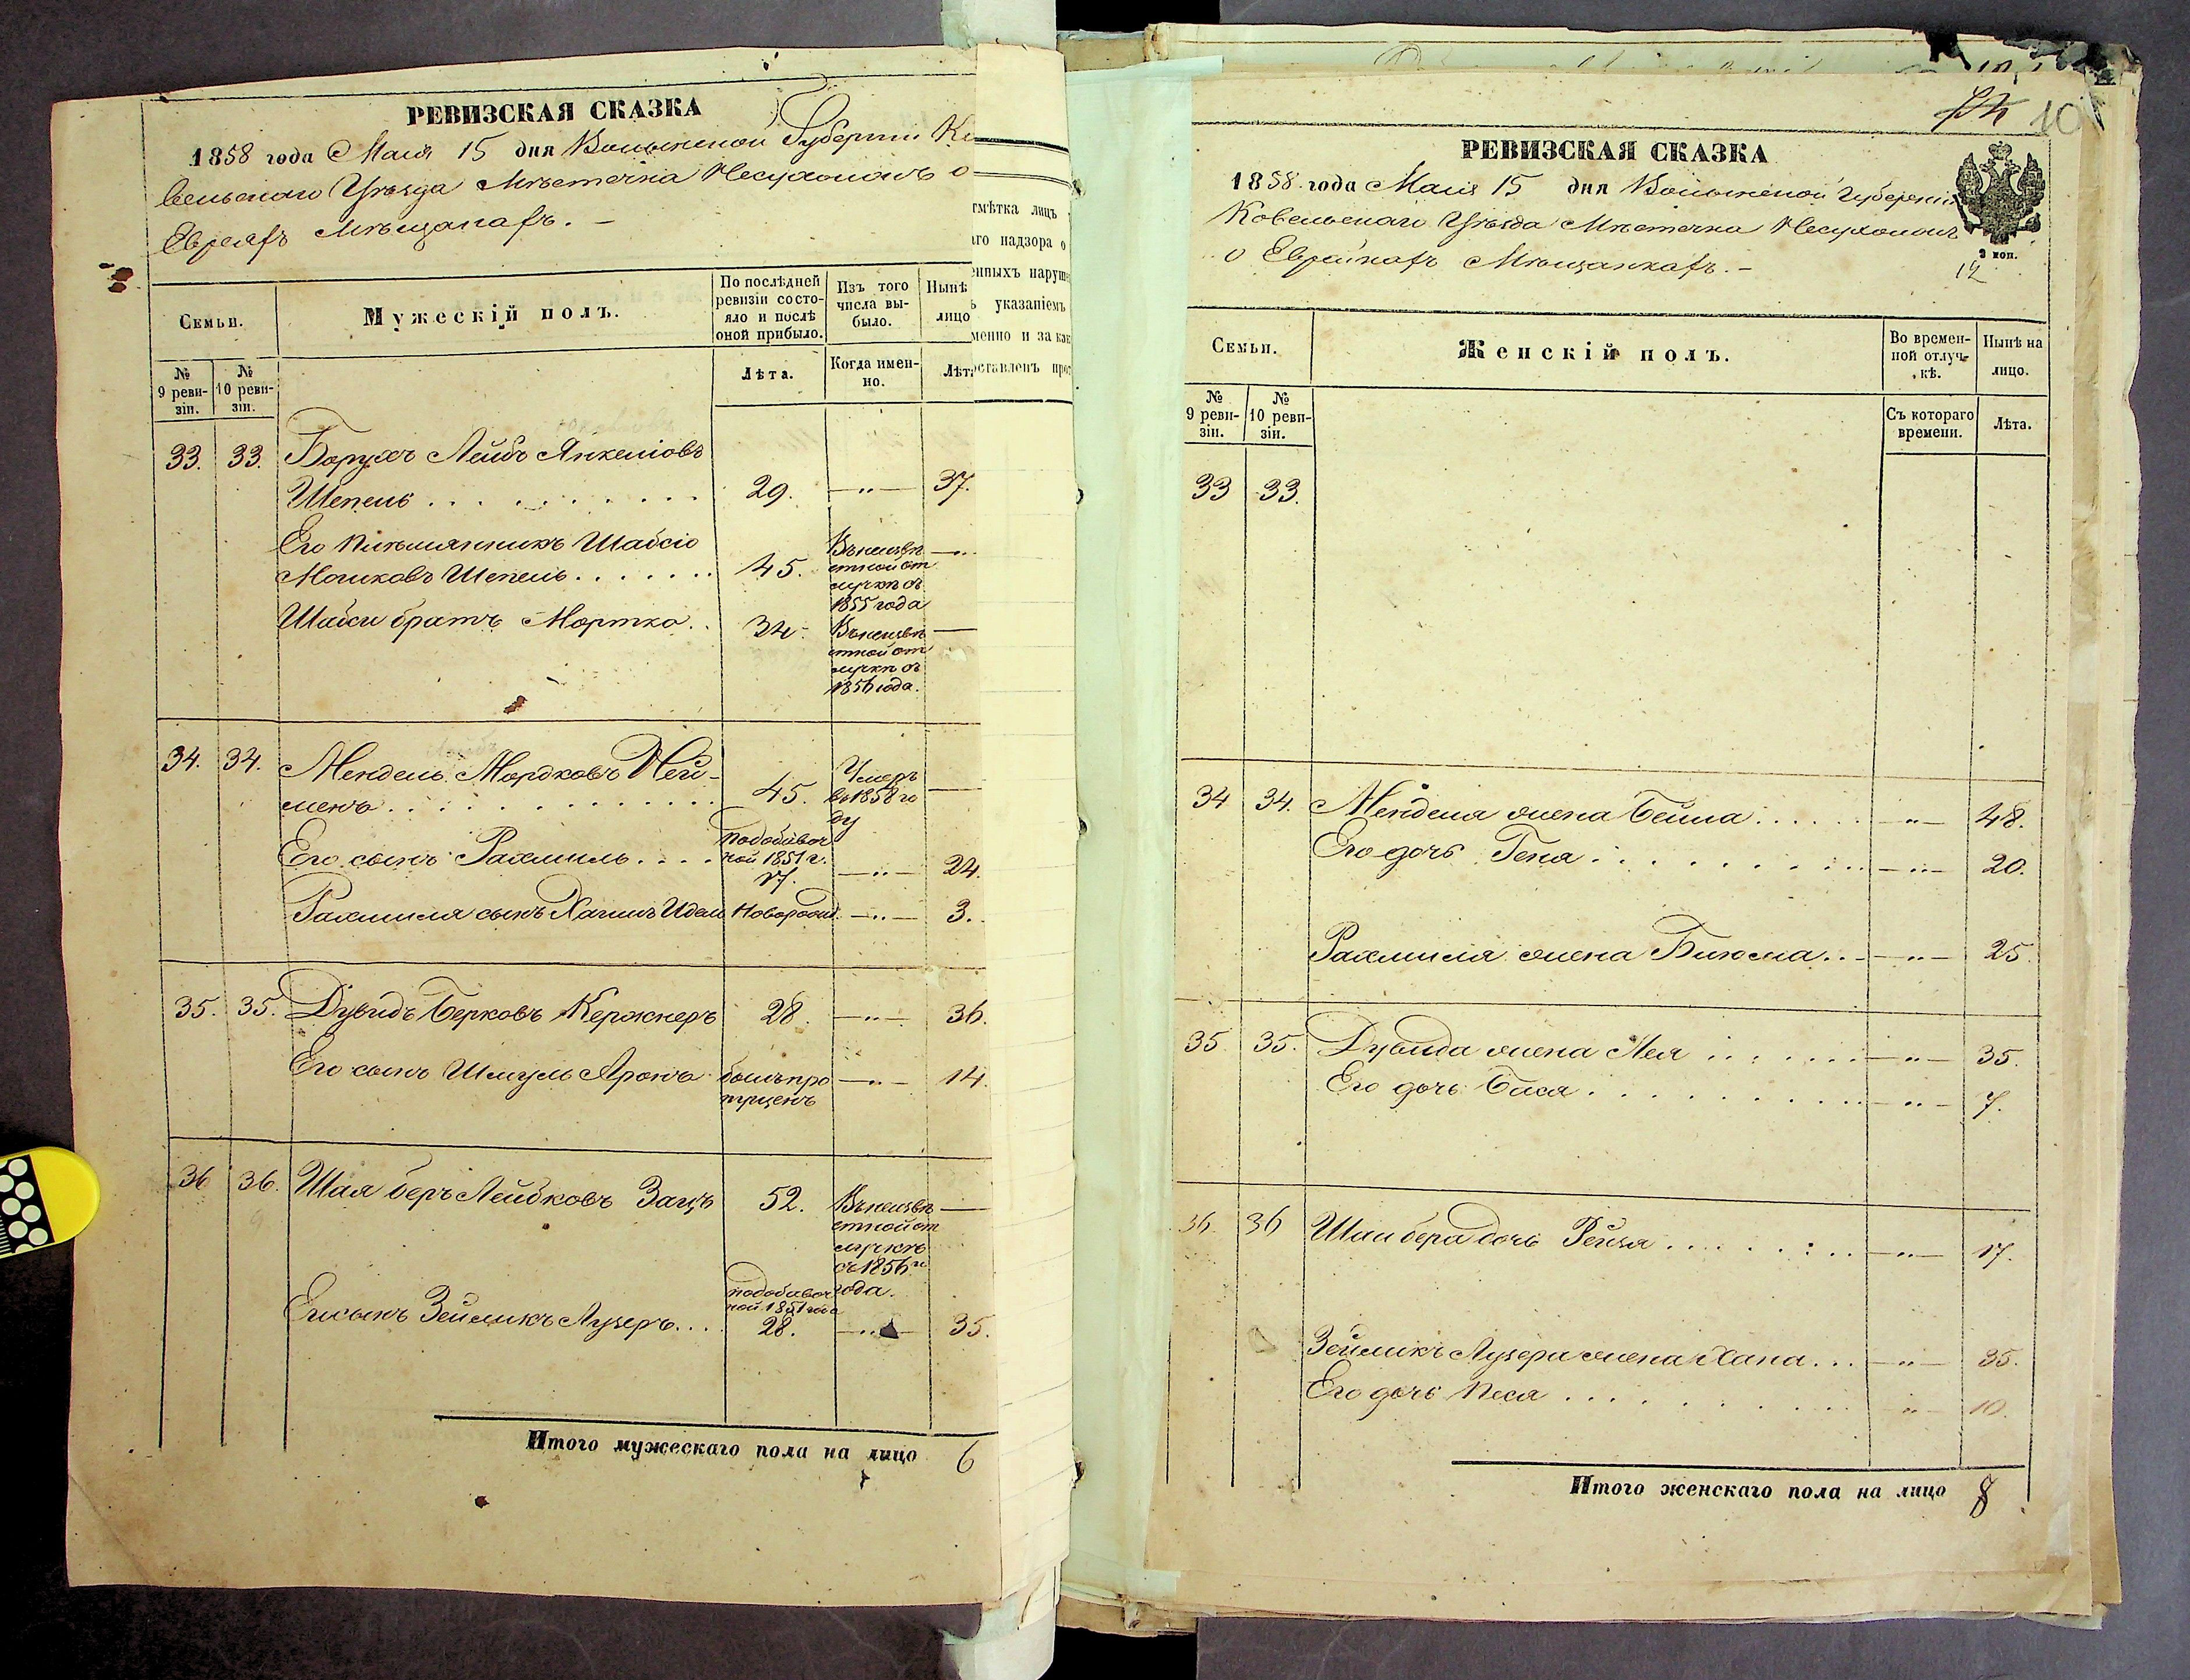 РЕВИЗСКАЯ СКАЗКА
1858 года Маія 15 дня Волынской Губерніи Ко
вельскаго Уѣзда Мѣстечка Несухоижъ о
Евреяхъ Мѣщанахъ. –
Семьи.
Мужескій полъ.
По послѣдней
ревизіи состо-
яло и послѣ
оной прибыло.
Изъ того
числа вы-
было.
Нынѣ
лицо
№
9 реви-
зіи.
№
10 реви-
зіи.
Лѣта.
Когда имен-
но.
Лѣта
33. 33. Борухъ Лейбъ Янкеліовъ
Шепель . . . . . . . . . . 29. —„— 37.
Его племянникъ Шабсіо
Мошковъ Шепель . . . . . . 45. Въ неизвѣ
стной от
лучкѣ съ
1855 года
Шабси братъ Мортко . . 34. Въ неизвѣ
стной от
лучкѣ съ
1856 года.
34. 34. Мендель Мордковъ Ней-
менъ . . . . . . . . . . . . 45. Умеръ
въ 1858 го
ду
Его сынъ Рахмиль . . . . по добавоч
ной 1851 г.
17. —„— 24.
Рахмиля сынъ Хаимъ Идель Новорожд. —„— 3.
35. 35. Дувидъ Берковъ Кержнеръ 28. —„— 36.
Его сынъ Шмуль Аронъ былъ про
пущенъ —„— 14.
36 36. Шая Беръ Лейбковъ Зацъ 52. Въ неизвѣ
стной от
лучкѣ
съ 1856 го
года.
Его сынъ Зейликъ Лузеръ . . . по добавоч
ной 1851 года
28. —„— 35.
Итого мужескаго пола на лицо 6
тмѣтка лицъ
аго надзора о
енныхъ наруше
ъ указаніемъ
менно и за как
оставленъ про
10
РЕВИЗСКАЯ СКАЗКА
1858 года Маія 15 дня Волынской Губерніи
Ковельскаго Уѣзда Мѣстечка Несухоижъ
о Еврейкахъ Мѣщанкахъ. –
3 коп.
12
Семьи.
Женскій полъ.
Во времен-
ной отлуч-
кѣ.
Нынѣ на
лицо.
№
9 реви-
зіи.
№
10 реви-
зіи.
Съ котораго
времени.
Лѣта.
33 33.
34 34. Менделя жена Бейла . . . . . —„— 48.
Его дочь Гена . . . . . . . . . —„— 20.
Рахмиля жена Блюма . . —„— 25.
35 35. Дувида жена Лея . . . . . . —„— 35.
Его дочь Бася . . . . . . . . . —„— 7.
36. 36 Шаи Бера дочь Рейзя . . . . . . . —„— 17.
Зейликъ Лузера жена Хана . . . —„— 35.
Его дочь Песя . . . . . . . . . „ — 10.
Итого женскаго пола на лицо 8